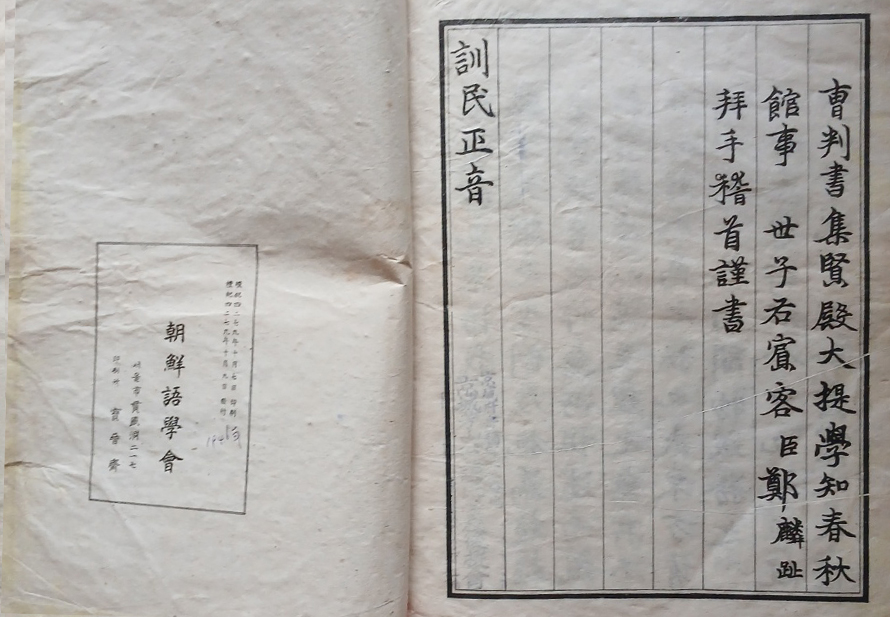 曺判書集賢殿大提學知春秋
館事 世子右賓客臣鄭麟趾
拜手稽首謹書
訓民正音
檀紀四二七九年十月七日 印刷
檀紀四二七九年十月九日 發行
朝鮮語學會
서울市貫鐵洞二一七
印刷所 寶晉齋